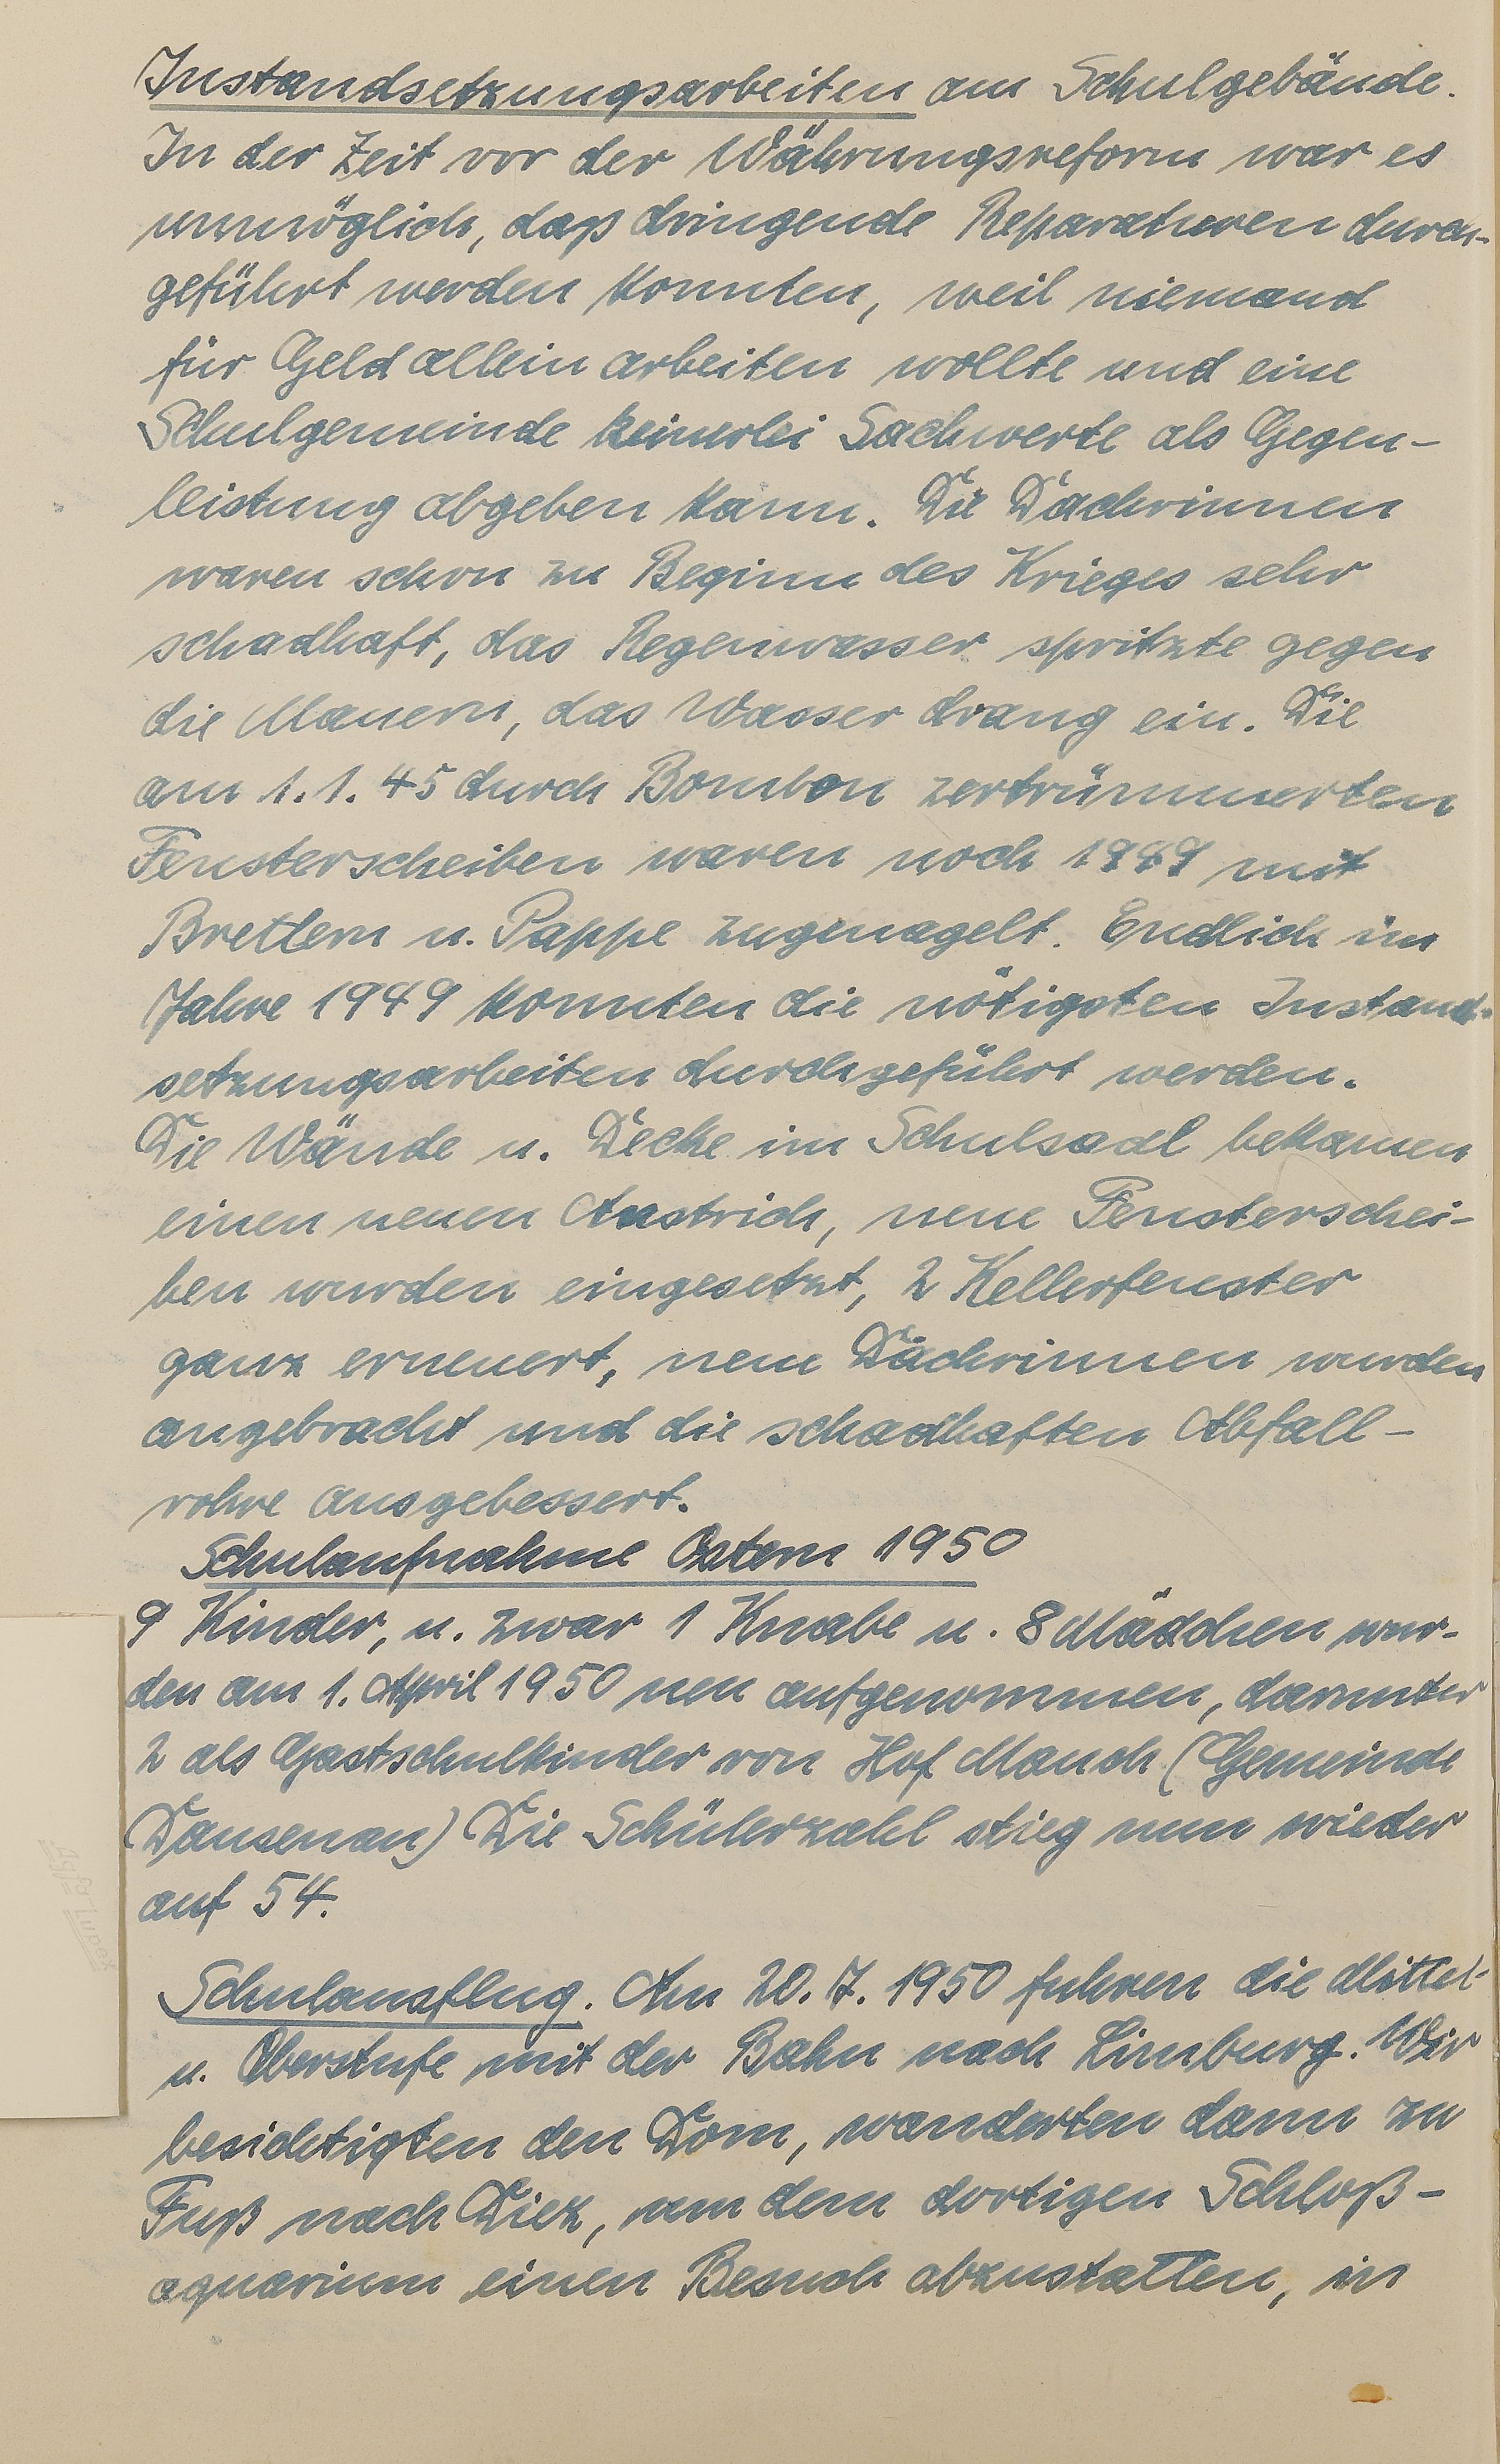 Instandsetzungsarbeiten am Schulgebäude.
In der Zeit vor der Währungsreform war es
unmöglich, daß dringende Reparaturen durch-
geführt werden konnten, weil niemand
für Geld allein arbeiten wollte und eine
Schulgemeinde keinerlei Sachwerte als Gegen-
leistung abgeben kann. Die Dachrinnen
waren schon zu Beginn des Krieges sehr
schadhaft, das Regenwasser spritzte gegen
die Mauern, das Wasser drang ein. Die
am 1.1.45 durch Bomben zertrümmerten
Fensterscheiben waren noch 1949 mit
Brettern u. Pappe zugenagelt. Endlich im
Jahre 1949 konnten die nötigsten Instand-
setzungsarbeiten durchgeführt werden.
Die Wände u. Decke im Schulsaal bekamen
einen neuen Anstrich, neue Fensterschei-
ben wurden eingesetzt, 2 Kellerfenster
ganz erneuert, neue Dachrinnen wurden
angebracht und die schadhaften Abfall-
rohre ausgebessert.
Schulaufnahme Ostern 1950
9 Kinder, u. zwar 1 Knabe u. 8 Mädchen wur-
den am 1. April 1950 neu aufgenommen, darunter
2 als Gastschulkinder von Hof Mauch (Gemeinde
Dausenau) Die Schülerzahl stieg nun wieder
auf 54.
Schulausflug. Am 20.7.1950 fuhren die Mittel-
u. Oberstufe mit der Bahn nach Limburg. Wir
besichtigten den Dom, wanderten dann zu
Fuß nach Diez, um dem dortigen Schloß-
aquarium einen Besuch abzustatten, in